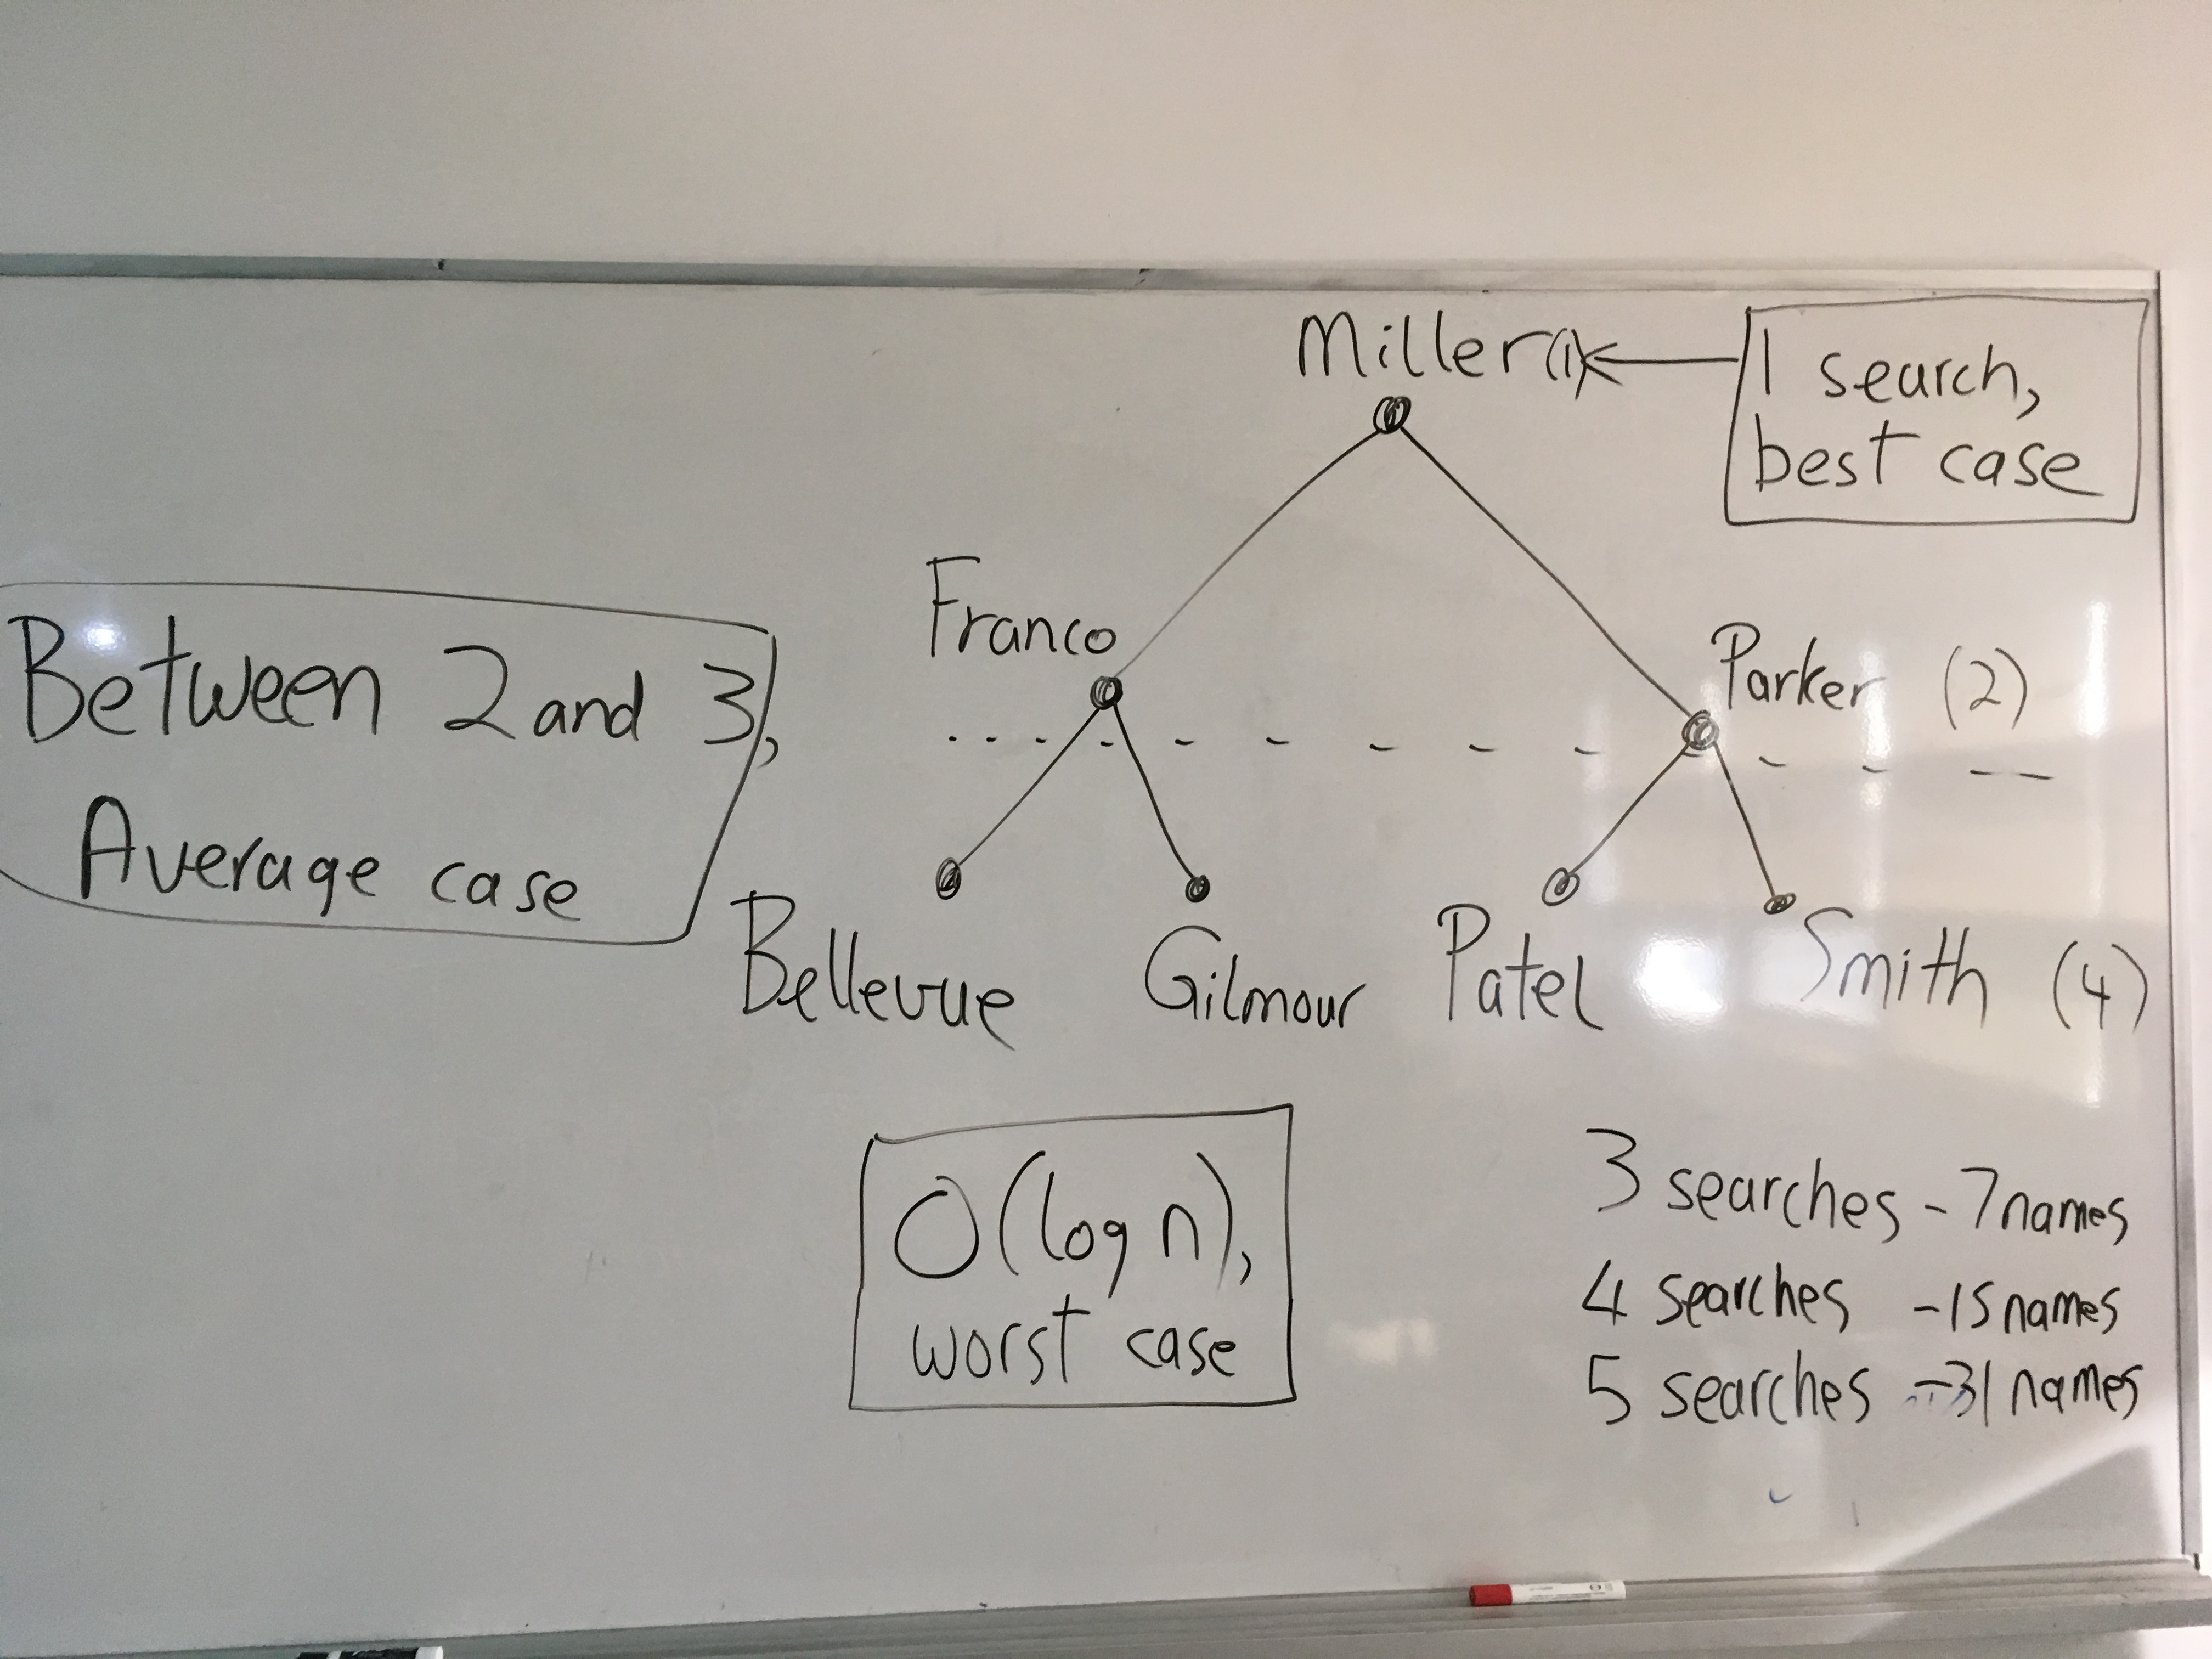 Miller (1)
1 search,
best case
Franco
Parker (2)
Between 2 and 3,
Average case
Bellevue
Gilmour
Patel
Smith (4)
O(log n),
worst case
3 searches - 7 names
4 searches - 15 names
5 searches - 31 names